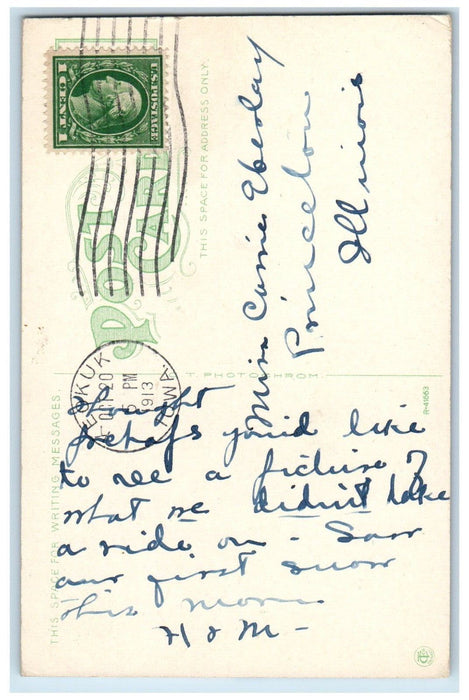 U.S. POSTAGE
1 CENT 1
POST CARD
THIS SPACE FOR ADDRESS ONLY.
Miss Carrie Eberlay
Princeton
Illinois
KEOKUK
OCT 20
5 PM
1913
IOWA.
THIS SPACE FOR WRITING MESSAGES.
PHOTOCHROM
R-41663
Thought
perhaps you'd like
to see a picture of
what we didn't take
a ride on - Saw
our first snow
this morn.
H & M -